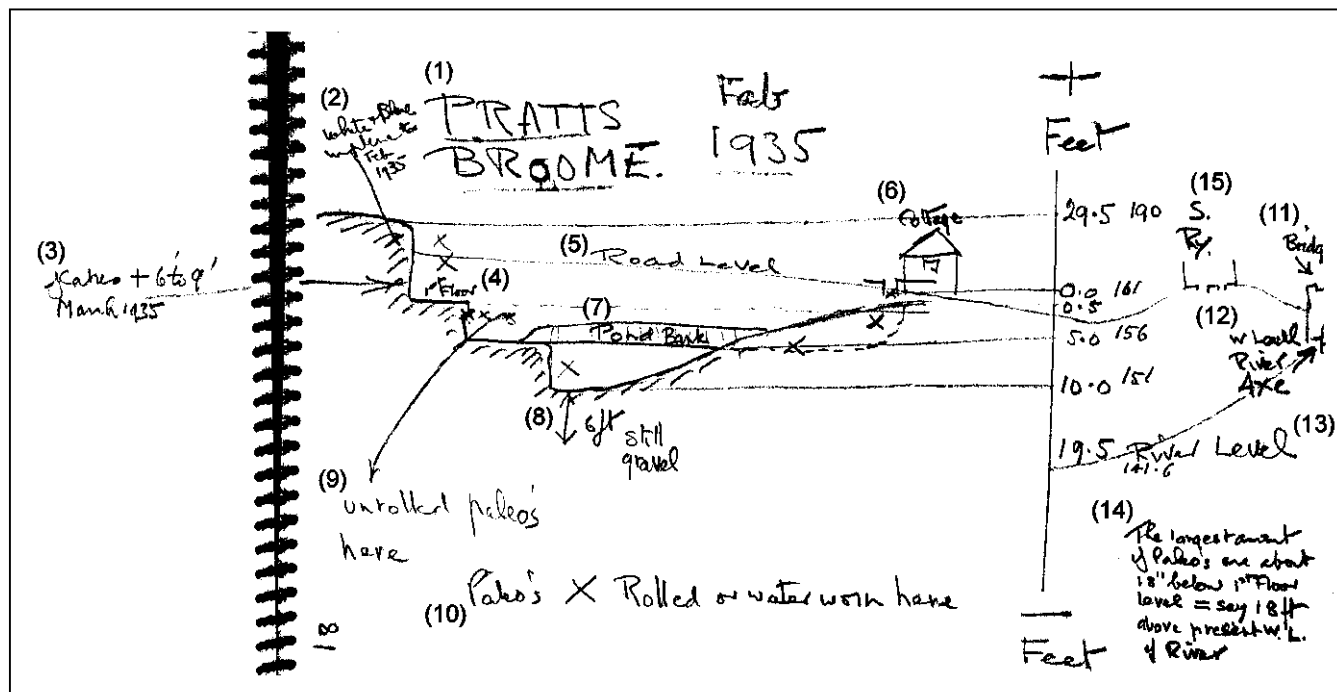 (1)
PRATTS
BROOME.
Feb
1935
(2)
White + Blue
Feb
1935
(3)
+ 6' to 9'
March 1935
(4)
1st Floor
(5)
Road Level
(6)
Cottage
(7)
Pond Bank
(8)
6ft still
gravel
(9)
unrolled paleo's
here
(10)
Paleo's X Rolled or water worn here
+
Feet
29.5 190
0.0 161
0.5
5.0 156
10.0 151
19.5 River Level
141.6
(15)
S.
Ry.
(11)
Bridg
(12)
W Level
River
Axe
(13)
(14)
The largest amount
of Paleo's are about
18" below 1st Floor
level = say 18ft
above present W.L.
of River
—
Feet